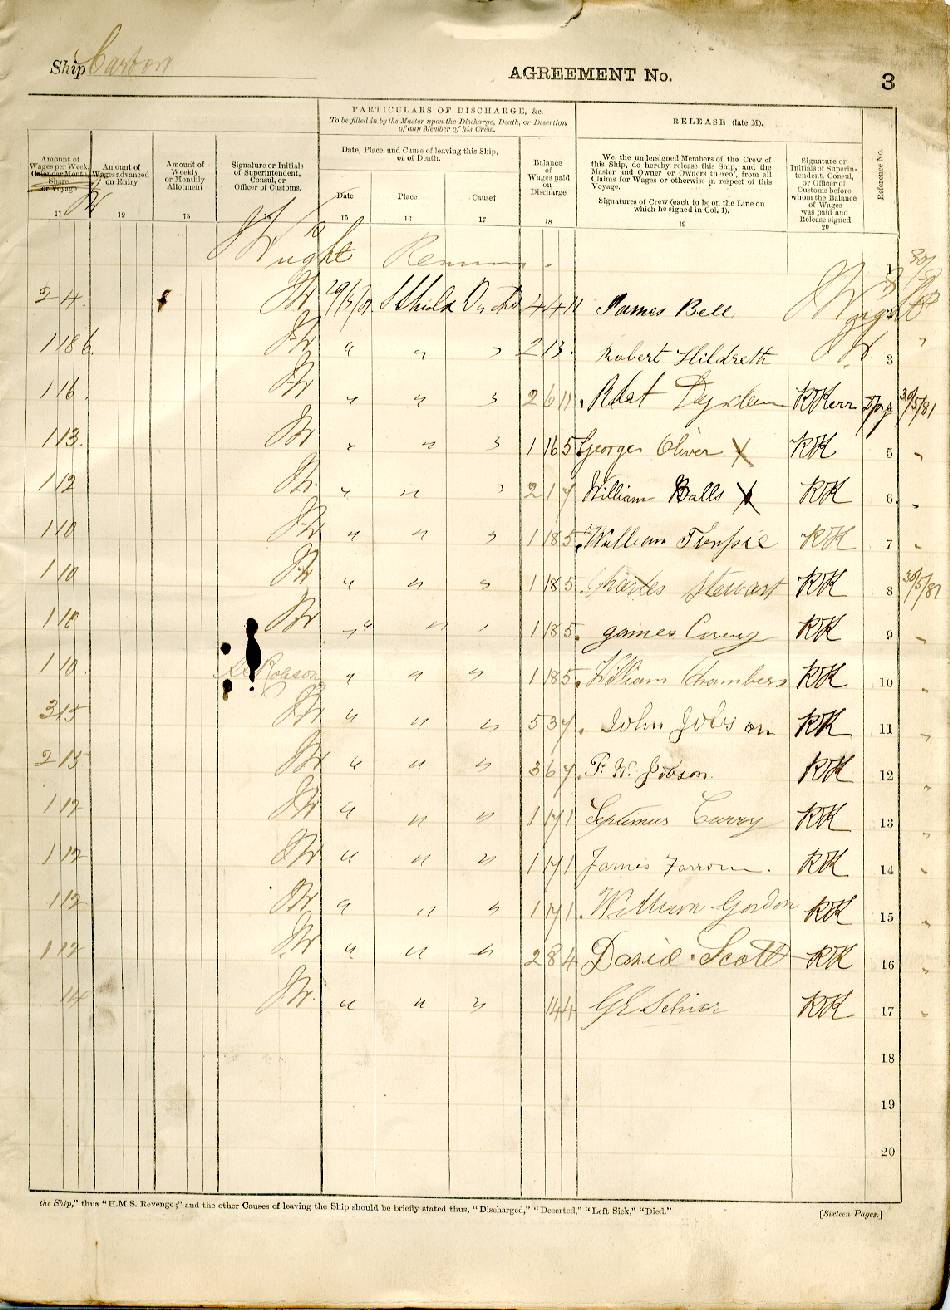 Ship Carbon AGREEMENT No. 3
PARTICULARS OF DISCHARGE, &c.
To be filled in by the Master upon the Discharge, Death, or Desertion
of any Member of his Crew.
RELEASE (late M).
Amount of
Wages per Week,
Share
or Voyage
Amount of
Wages advanced
on Entry
Amount of
Weekly
or Monthly
Allotment
Signature or Initials
of Superintendent,
Consul, or
Officer of Customs.
Date, Place and Cause of leaving this Ship,
or of Death.
Date Place Cause
Balance
of
Wages paid
on
Discharge
We, the undersigned Members of the Crew of
this Ship, do hereby release this Ship, and the
Master and Owner or Owners thereof, from all
Claims for Wages or otherwise in respect of this
Voyage.
Signatures of Crew (each to be on the Line on
which he signed in Col. 1).
Signature or
Initials of Superin-
tendent, Consul,
or Officer of
Customs before
whom the Balance
of Wages
was paid and
Release signed.
Reference No.
11 12 13 14 15 16 17 18 19 20
Wright Remains 1
2 4 Shields 4 4 11 James Bell
1 18 6 " " " 2 13 Robert Hildreth 3
1 16 " " " 2 6 11 RKerr 30/5/81
1 13 " " " 1 16 5 George Oliver X RK 5 "
1 12 " " " 2 1 7 William Balls X RK 6 "
1 10 " " " 1 18 5 William RK 7 "
1 10 " " " 1 18 5 Charles Stewart RK 8 30/5/81
1 10 " " " 1 18 5 James RK 9 "
1 10 Robson " " " 1 18 5 William Chambers RK 10 "
3 15 " " " 5 3 7 John Jobson RK 11 "
2 15 " " " 3 6 7 F. W. Jobson RK 12 "
1 12 " " " 1 17 1 Septimus Curry RK 13 "
1 12 " " " 1 17 1 James Farrow RK 14 "
1 12 " " " 1 17 1 William Gordon RK 15 "
1 12 " " " 2 8 4 David Scott RK 16 "
14 " " " 14 4 RK 17 "
18
19
20
the Ship," thus "H.M.S. Revenge;" and the other Causes of leaving the Ship should be briefly stated thus, "Discharged," "Deserted," "Left Sick," "Died." [Sixteen Pages.]